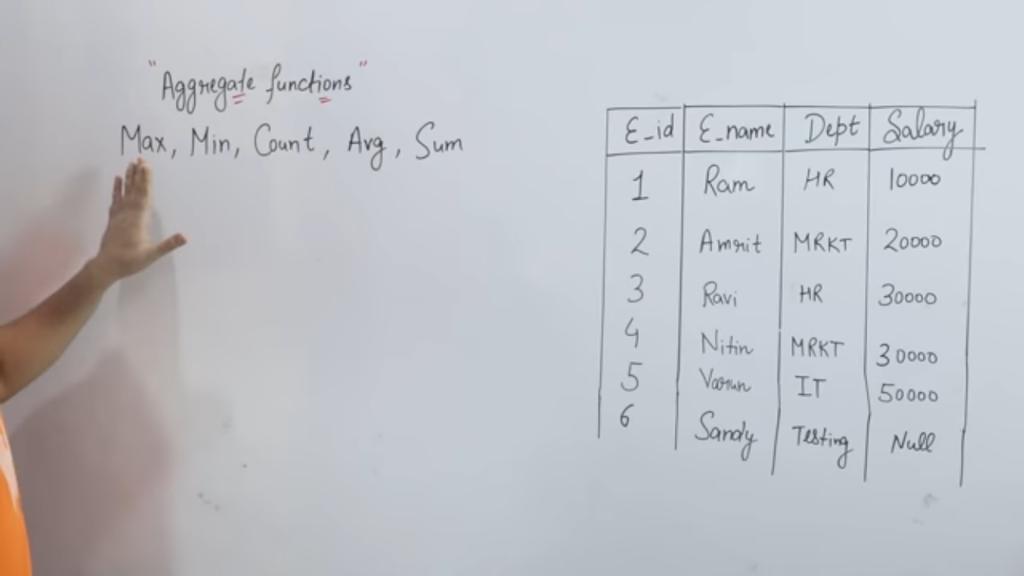 "Aggregate functions"
Max, Min, Count, Avg, Sum
E_id E_name Dept Salary
1 Ram HR 10000
2 Amrit MRKT 20000
3 Ravi HR 30000
4 Nitin MRKT 30000
5 Varun IT 50000
6 Sandy Testing Null